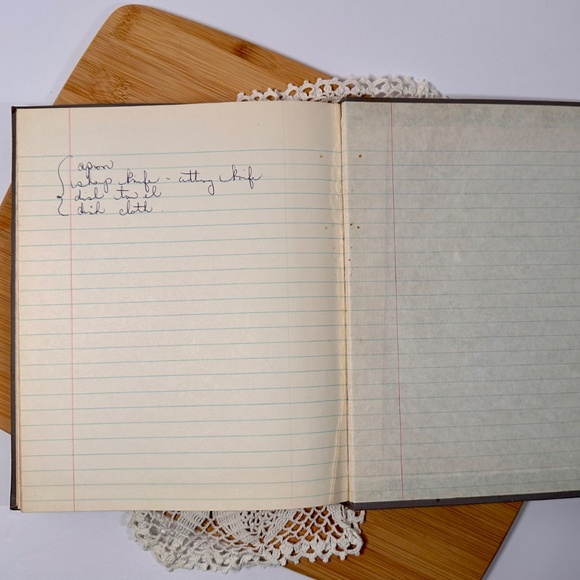 apron
sharp knife - cutting knife
dish towel
dish cloth